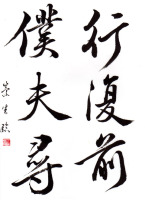 行復前
僕夫尋